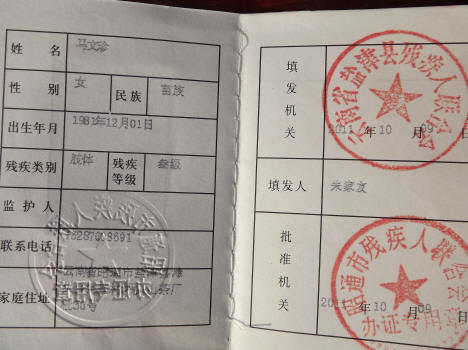 姓 名 马文珍
性 别 女 民族 苗族
出生年月 1981年12月01日
残疾类别 肢体 残疾等级 叁级
监 护 人
联系电话
家庭住址
填发机关
云南省盐津县残疾人联合会
2011 年 10 月 09 日
填发人
批准机关
昭通市残疾人联合会
办证专用章
2011 年 10 月 09 日